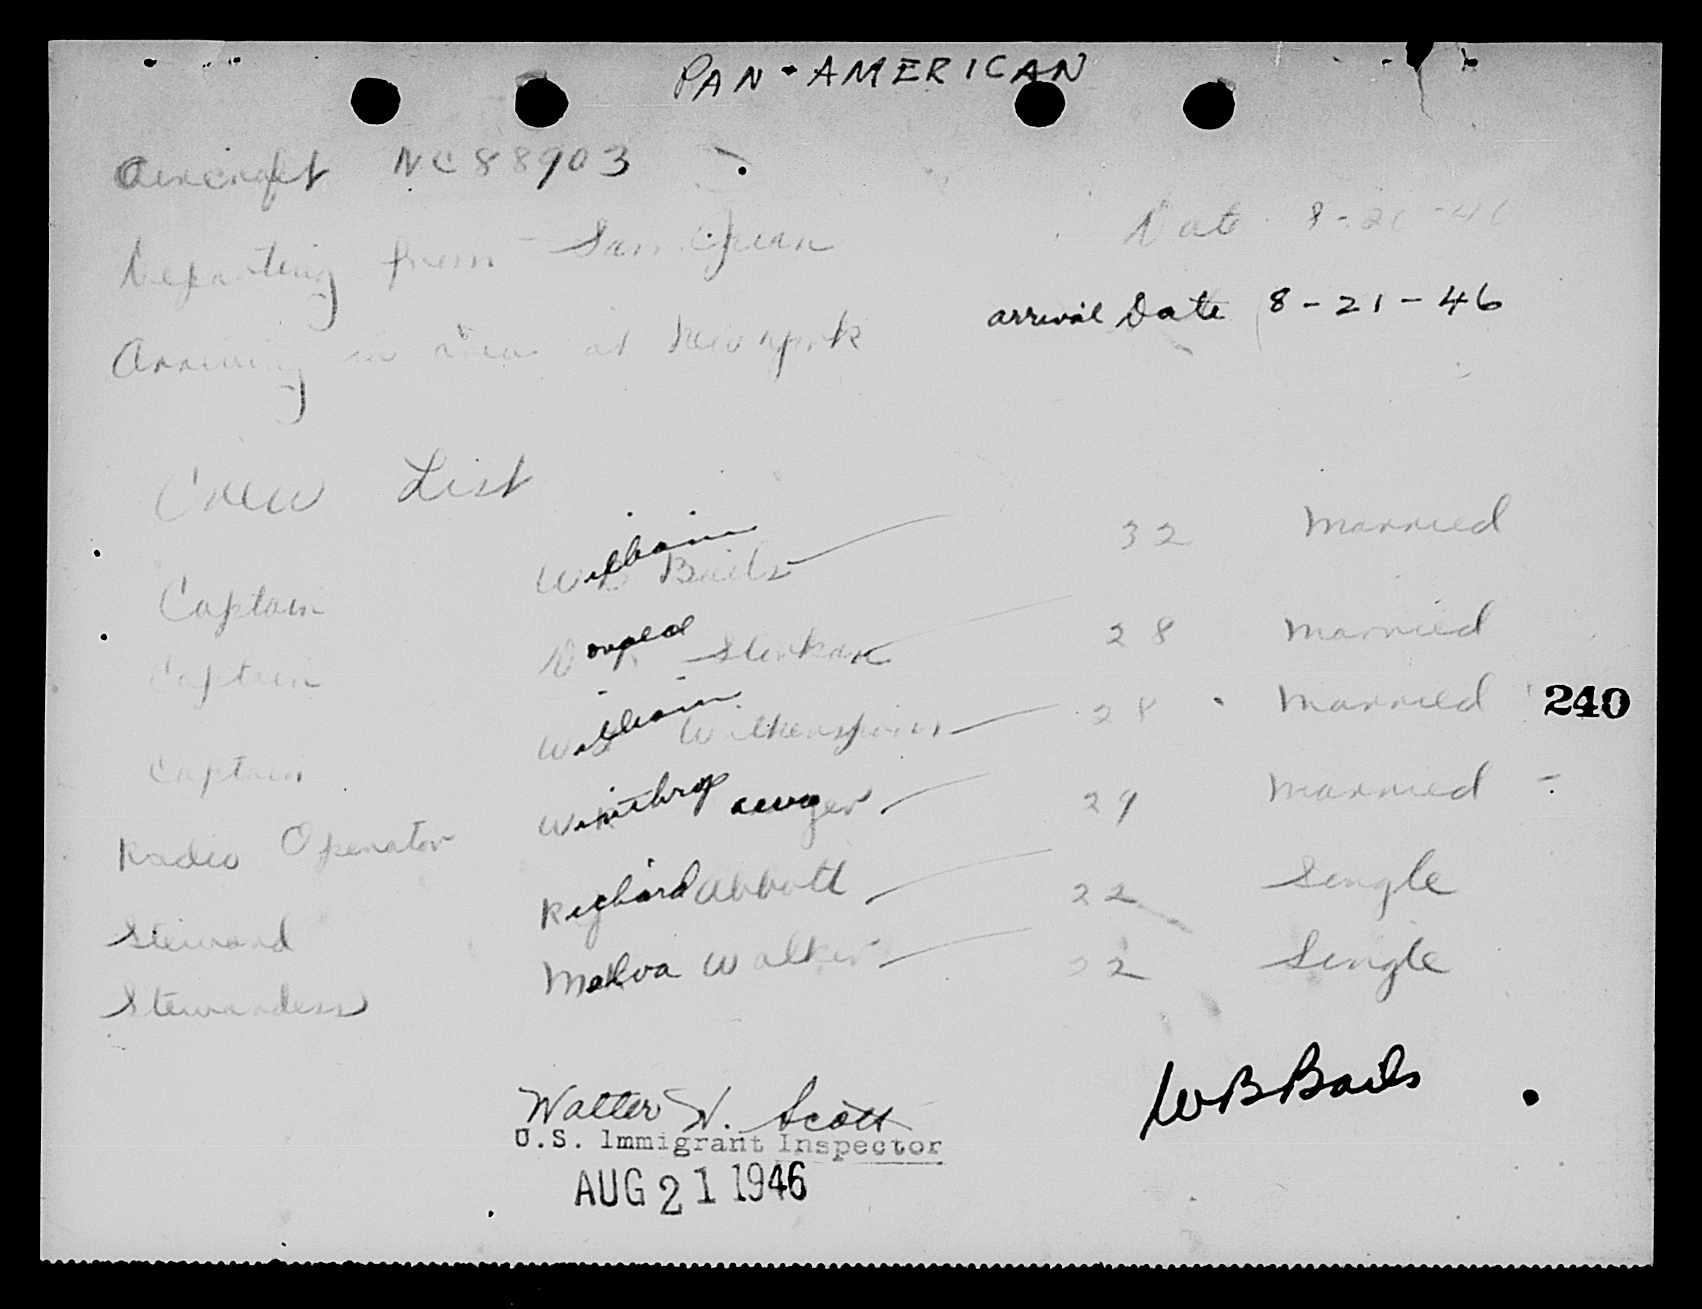 PAN-AMERICAN
Aircraft NC88903
Departing from - San Juan Date 8-20-46
arrival Date 8-21-46
Arriving in at New York
Crew List
Captain William Bails 32 Married
Captain Donald 28 Married
Captain William 28 Married
240
Radio Operator Winthrop 29 Married
Steward Richard Abbott 22 Single
Stewardess Melva Walker 22 Single
Walter W. Scott
WB Bails
U.S. Immigrant Inspector
AUG 21 1946